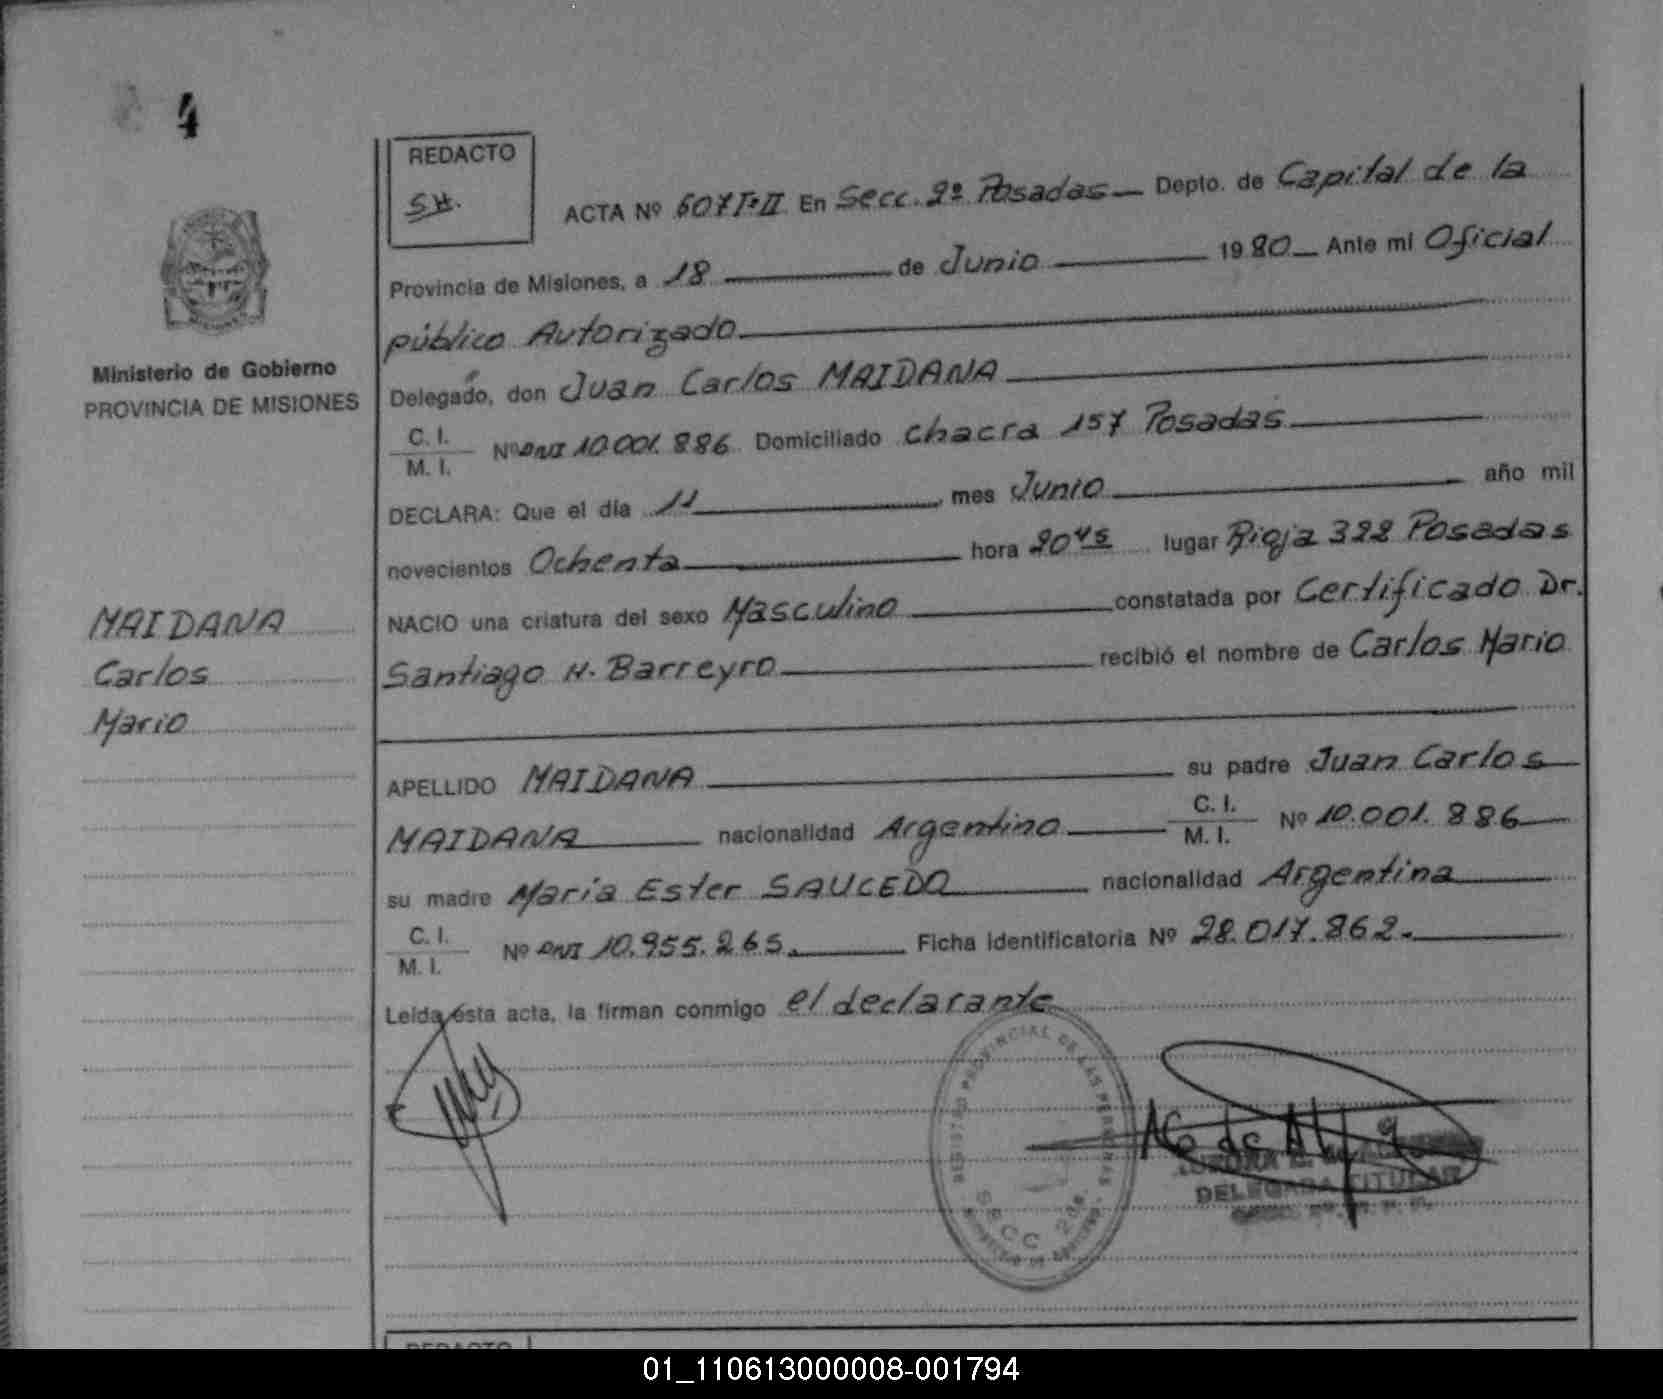 4
REDACTO
S.H.
ACTA Nº 607 Tº II En Secc. 2º Posadas Depto. de Capital de la
Provincia de Misiones, a 18 de Junio 1980 Ante mi Oficial
público Autorizado
Delegado, don Juan Carlos MAIDANA
C. I.
M. I.
Nº DNI 10.001.886 Domiciliado chacra 157 Posadas
DECLARA: Que el día 11, mes Junio año mil
novecientos Ochenta hora 20 45 lugar Rioja 322 Posadas
NACIO una criatura del sexo Masculino constatada por Certificado Dr.
Santiago H. Barreyro recibió el nombre de Carlos Mario
APELLIDO MAIDANA su padre Juan Carlos
MAIDANA nacionalidad Argentino C. I. M. I. Nº 10.001.886
su madre María Ester SAUCEDO nacionalidad Argentina
C. I.
M. I.
Nº DNI 10.955.265. Ficha Identificatoria Nº 28.017.862.
Leída ésta acta, la firman conmigo el declarante
Ministerio de Gobierno
PROVINCIA DE MISIONES
MAIDANA
Carlos
Mario
REGISTRO PROVINCIAL DE LAS PERSONAS
SECC 2da.
DELEGADA TITULAR
REDACTO
01_110613000008-001794